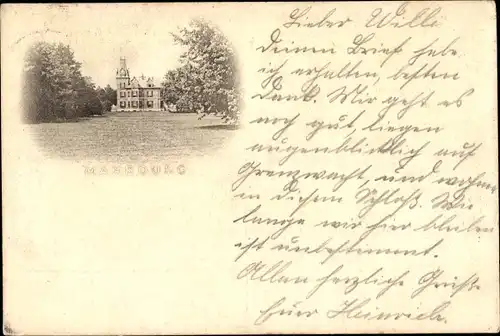 MAEBOURG
Lieber Willi
Deinen Brief habe
ich erhalten, besten
Dank. Mir geht es
noch gut, liegen
augenblicklich auf
Grenzwacht, und wohnen
in diesem Schloß. Wie
lange wir hier bleiben
ist unbestimmt.
Allen herzliche Grüße
Euer Heinrich.